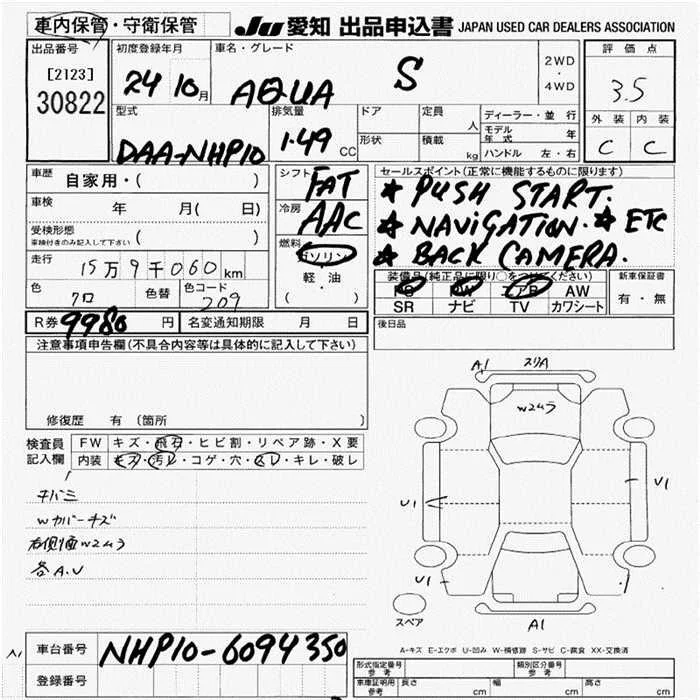 車内保管・守衛保管
JU 愛知 出品申込書 JAPAN USED CAR DEALERS ASSOCIATION
出品番号 初度登録年月 車名・グレード 評価点
[2123]
30822
24 10月 AQUA S
2WD
・
4WD
3.5
外装 内装
C C
型式 排気量 ドア 定員 人 ディーラー・並行
DAA-NHP10 1.49 CC
形状 積載 kg
モデル年式 年
ハンドル 左・右
車歴 自家用・( )
シフト FAT
車検 年 月( 日)
冷房 AAC
受検形態 ( )
車検付きのみ記入して下さい
燃料 ガソリン
軽・油
( ・ )
走行 15万9千060km
色 クロ 色替 色コード 209
R券 9980 円 名変通知期限 月 日
セールスポイント(正常に機能するものに限ります)
★ PUSH START.
★ NAVIGATION. ★ ETC
★ BACK CAMERA.
装備品(純正品に限り○をつけてください) 新車保証書
PS PW エアB AW
SR ナビ TV カワシート
有・無
後日品
注意事項申告欄(不具合内容等は具体的に記入して下さい)
修復歴 有 (箇所 )
検査員
記入欄
FW キズ・飛石・ヒビ割・リペア跡・X要
内装 キズ・汚レ・コゲ・穴・スレ・キレ・破レ
チバミ
Wカバーキズ
右側面W2ムラ
各A.U
A1 スリA
W2ムラ
U1
U1
U1
A1
スペア
A-キズ E-エクボ U-凹み W-補修跡 S-サビ C-腐食 XX-交換済
A1
車台番号 NHP10-6094350
登録番号
形式指定番号
参考
類別区分番号
参考
車庫証明用
参考
長さ cm 幅 cm 高さ cm